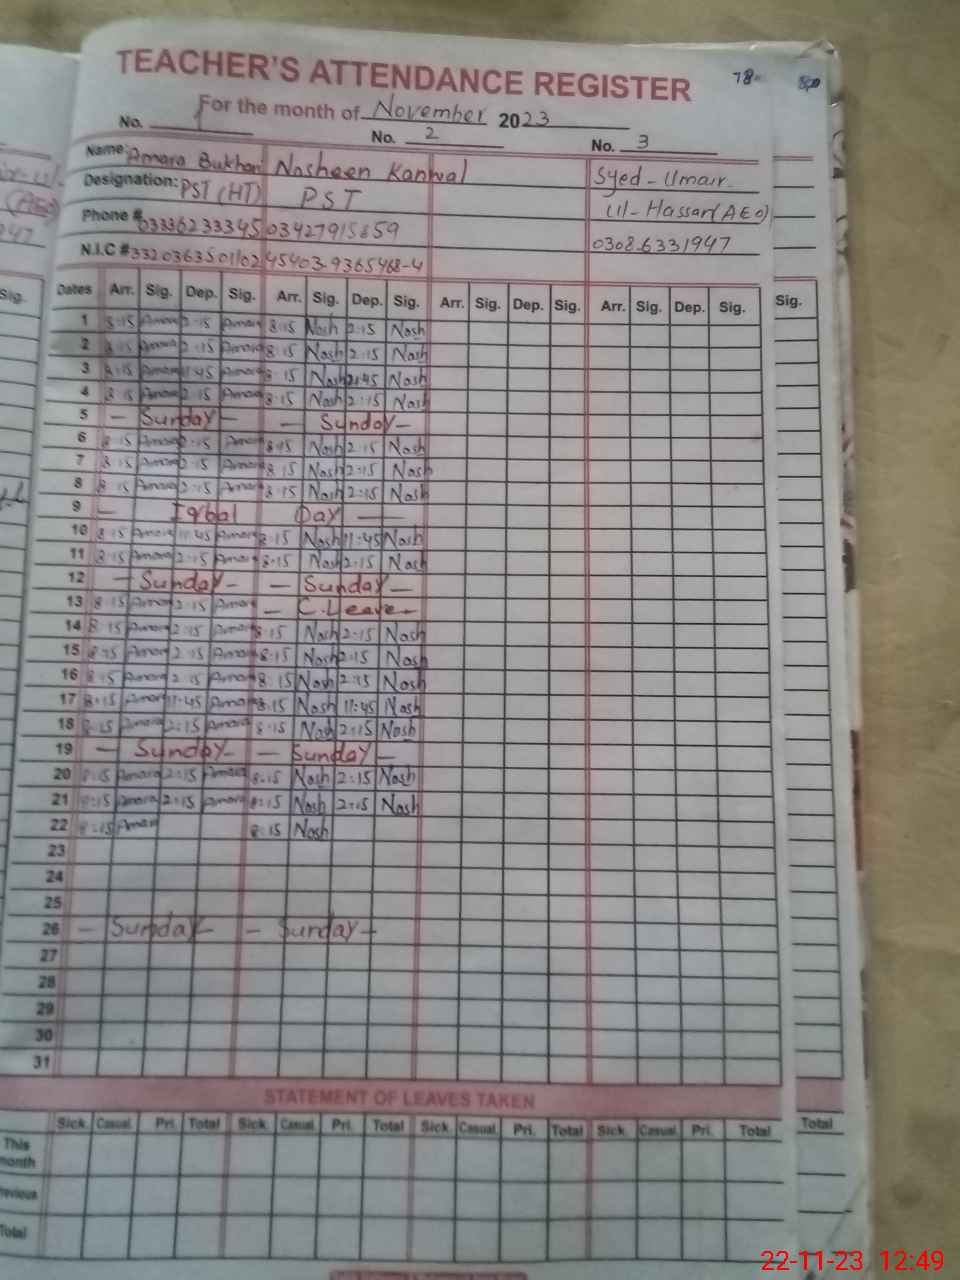 TEACHER'S ATTENDANCE REGISTER 78
For the month of November 2023
No. 1 No. 2 No. 3
Name: Amara Bukhari Nosheen Kanwal Syed-Umair
Designation: PST (HT) PST Ul-Hassan (AEO)
Phone # 03336233345 0308-6331947
N.I.C #
Sig. Dates Arr. Sig. Dep. Sig. Arr. Sig. Dep. Sig. Arr. Sig. Dep. Sig. Arr. Sig. Dep. Sig. Sig.
1 8:15 Amara 2:15 Amara 8:15 Nosh 2:15 Nosh
2 8:15 Amara 2:15 Amara 8:15 Nosh 2:15 Nosh
3 8:15 Amara 11:45 Amara 8:15 Nosh Nosh
4 8:15 Amara 2:15 Amara 8:15 Nosh 2:15 Nosh
5 - Sunday - - Sunday -
6 8:15 Amara 2:15 Amara 8:15 Nosh 2:15 Nosh
7 8:15 Amara 2:15 Amara 8:15 Nosh 2:15 Nosh
8 8:15 Amara 2:15 Amara 8:15 Nosh 2:15 Nosh
9 - Iqbal Day -
10 8:15 Amara 11:45 Amara 8:15 Nosh 11:45 Nosh
11 8:15 Amara 2:15 Amara 8:15 Nosh 2:15 Nosh
12 - Sunday - - Sunday -
13 8:15 Amara 2:15 Amara - C.Leave -
14 8:15 Amara 2:15 Amara 8:15 Nosh 2:15 Nosh
15 8:15 Amara 2:15 Amara 8:15 Nosh 2:15 Nosh
16 8:15 Amara 2:15 Amara 8:15 Nosh 2:15 Nosh
17 8:15 Amara 11:45 Amara 8:15 Nosh 11:45 Nosh
18 8:15 Amara 2:15 Amara 8:15 Nosh 2:15 Nosh
19 - Sunday - - Sunday -
20 8:15 Amara 2:15 Amara 8:15 Nosh 2:15 Nosh
21 8:15 Amara 2:15 Amara 8:15 Nosh 2:15 Nosh
22 8:15 Amara 8:15 Nosh
23
24
25
26 - Sunday - - Sunday -
27
28
29
30
31
STATEMENT OF LEAVES TAKEN
Sick. Casual. Pri. Total Sick. Casual. Pri. Total Sick. Casual. Pri. Total Sick. Casual. Pri. Total Total
This
month
Previous
Total
22-11-23 12:49